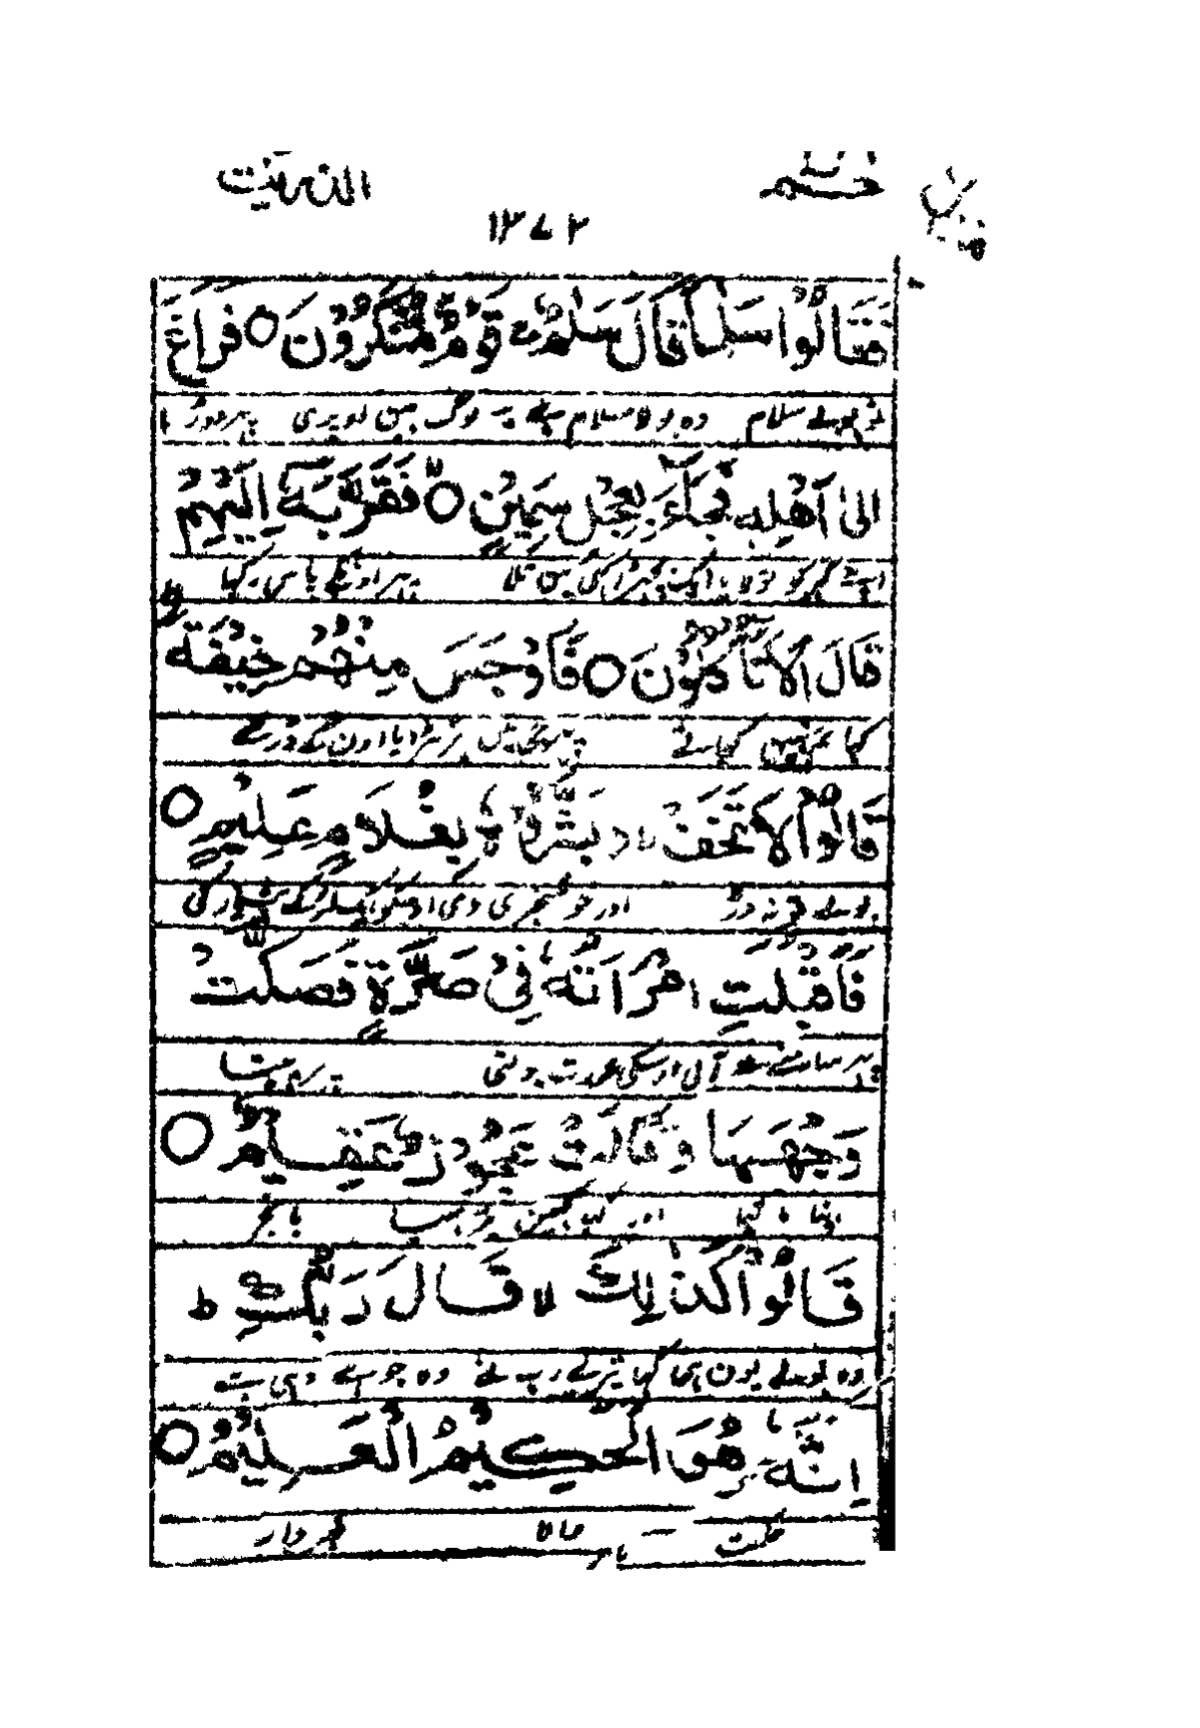 حٰم الذٰریٰت
۱۳۷۲
فَقَالُوْا سَلٰمًا قَالَ سَلٰمٌ قَوْمٌ مُّنْكَرُوْنَ ○ فَرَاغَ
تو بولے سلام وہ بولا سلام ہے یہ لوگ ہین اوپری پہر دوڑا
اِلٰی اَهْلِهٖ فَجَآءَ بِعِجْلٍ سَمِیْنٍ ○ فَقَرَّبَهٗۤ اِلَیْهِمْ
اپنے گھر کو تو لایا ایک بچھڑا گھی مین تلا پہر اونکے پاس رکہا
قَالَ اَلَا تَاْكُلُوْنَ ○ فَاَوْجَسَ مِنْهُمْ خِیْفَةً
کہا کیون نہین کہاتے پہر جی مین ڈر
قَالُوْا لَا تَخَفْ وَ بَشَّرُوْهُ بِغُلَامٍ عَلِیْمٍ ○
بولے تو نہ ڈر اور خوشخبری دی اوسکو ایک لڑکے ہشیار کی
فَاَقْبَلَتِ امْرَاَتُهٗ فِیْ صَرَّةٍ فَصَكَّتْ
پہر سامنے سے آئی اوسکی عورت بولتی پہر پیٹا
وَجْهَهَا وَ قَالَتْ عَجُوْزٌ عَقِیْمٌ ○
اپنا ماتہا اور کہا کہین بڑہیا بانجہ
قَالُوْا كَذٰلِكِ لا قَالَ رَبُّكِ ط
وہ بولے یون ہی کہا تیرے رب نے وہ جو ہے وہی ہے
اِنَّهٗ هُوَ الْحَكِیْمُ الْعَلِیْمُ ○
حکمت والا خبردار